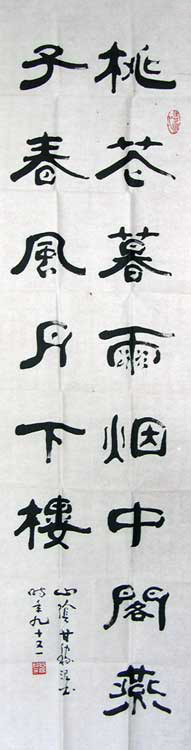 桃花暮雨烟中閣燕
子春風月下樓
山陰甘稼泥书
时年九十又一